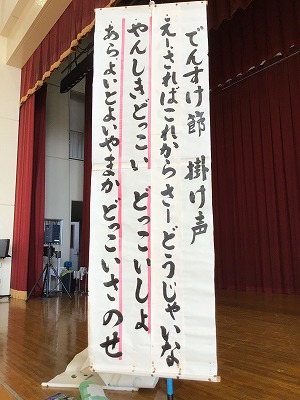 でんすけ節 掛け声
えーさればこれからさーどうじゃいな
やんしきどっこい どっこいしょ
あらよいとよいやまか どっこいさのせ